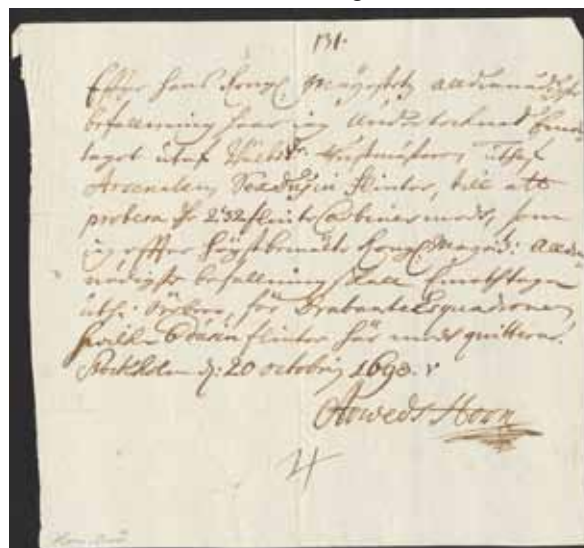 131.
Efter hans Kongl Mayestetz allernådigste
befallning haar jag underteknadt
taget uthaf Ruthmästaren uthaf
Arsenalen Sex dusin flintor, till att
probera 232 flinte Carbiner medh, som
jag effter högstbemälte Kongl Mayestz: aller
nådigste befallning skall Emottaga
uthi Örebro, för Drabante Esquadronen
hvilke 6 dusin flintor här medh quitteras.
Stockholm d: 20 octobris 1698.
Arweds Horn